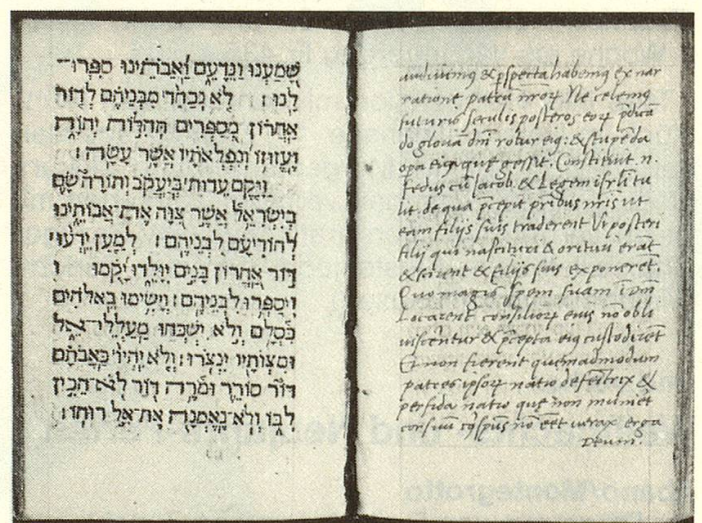 שָׁמַעְנוּ וַנֵּדָעֵם וַאֲבֹתֵינוּ סִפְּרוּ־
לָנוּ׃ לֹא נְכַחֵד מִבְּנֵיהֶם לְדוֹר
אַחֲרוֹן מְסַפְּרִים תְּהִלּוֹת יְהוָֹה
וֶעֱזוּזוֹ וְנִפְלְאֹתָיו אֲשֶׁר עָשָׂה׃
וַיָּקֶם עֵדוּת בְּיַעֲקֹב וְתוֹרָה שָׂם
בְּיִשְׂרָאֵל אֲשֶׁר צִוָּה אֶת־אֲבוֹתֵינוּ
לְהוֹדִיעָם לִבְנֵיהֶם׃ לְמַעַן יֵדְעוּ
דּוֹר אַחֲרוֹן בָּנִים יִוָּלֵדוּ יָקֻמוּ
וִיסַפְּרוּ לִבְנֵיהֶם׃ וְיָשִׂימוּ בֵאלֹהִים
כִּסְלָם וְלֹא יִשְׁכְּחוּ מַעַלְלֵי־אֵל
וּמִצְוֹתָיו יִנְצֹרוּ׃ וְלֹא יִהְיוּ כַּאֲבֹתָם
דּוֹר סוֹרֵר וּמֹרֶה דּוֹר לֹא־הֵכִין
לִבּוֹ וְלֹא־נֶאֶמְנָה אֶת־אֵל רוּחוֹ׃
audiuimꝰ & pspecta habemꝰ ex nar
ratione patrũ nr̃oꝝ. Ne celemꝰ
futuris seculis posteros eoꝝ p̃dicã
do gloriã dñi & stupẽda
opa eiꝰ que gessit. Constituit .n.
fedus cũ Jacob. & Legem isrl̃i tu
lit. de qua p̃cepit pr̃ibus nr̃is ut
eam filijs suis traderent Vt posteri
filij qui nascituri & orituri erãt
& filijs suis exponerẽt.
Quo magis spem suam ĩ dño
Locarent consilioꝝ eius nõ obli
uiscerentur & p̃cepta eiꝰ custodirẽt
Et non fierent quemadmodum
patres ipsoꝝ natio defectrix &
perfida natio que non
cor suũ cꝰ sp̃us nõ eẽt uerax erga
Deum.